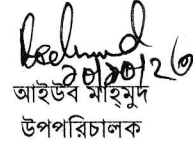 ২০/১০/২৩
আইউব মাহ্‌মুদ
উপপরিচালক